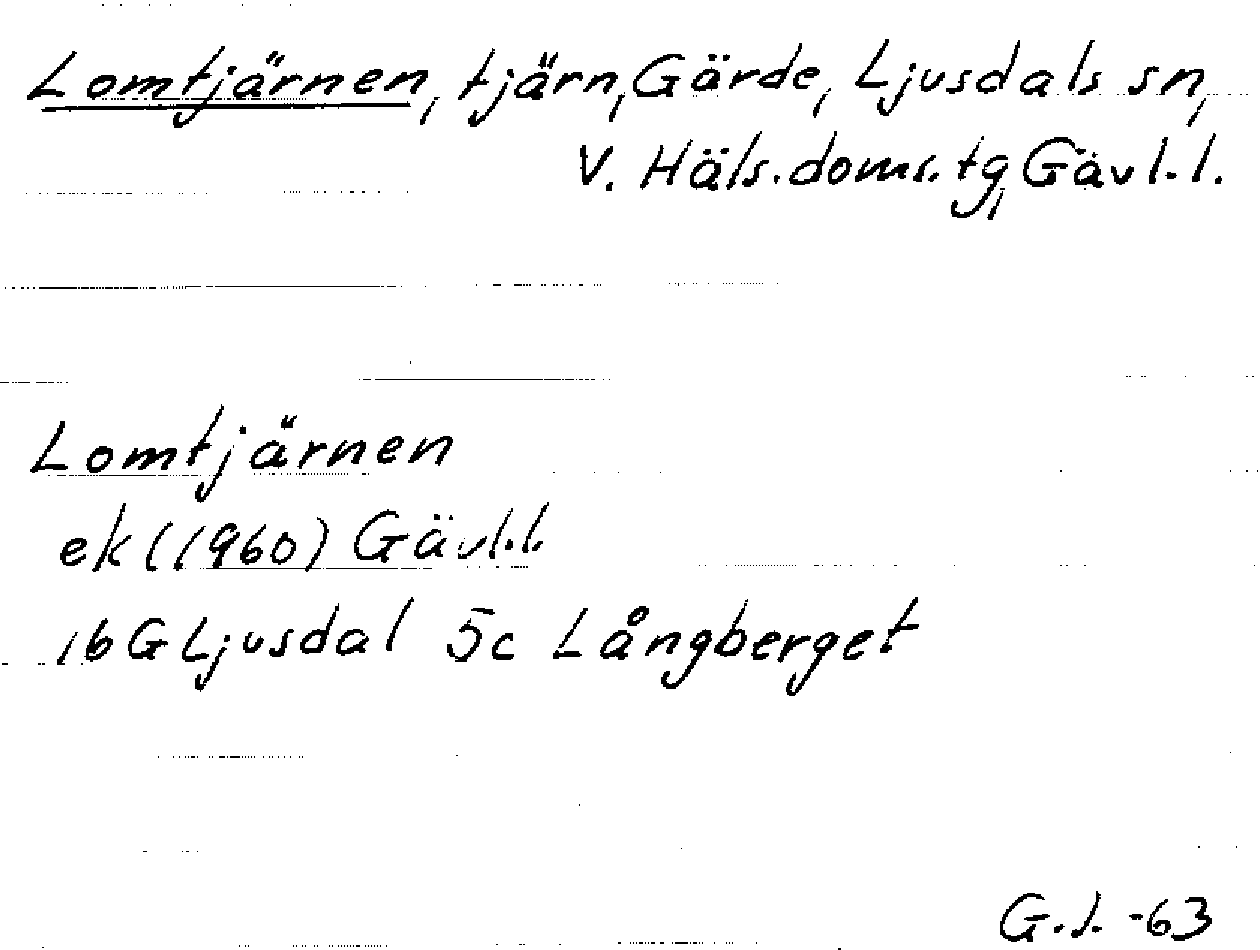 Lomtjärnen, tjärn, Gärde, Ljusdals sn,
V. Häls. doms. tg, Gävl. l.
Lomtjärnen
ek (1960) Gävl. l.
16 G Ljusdal 5c Långberget
G. J. -63